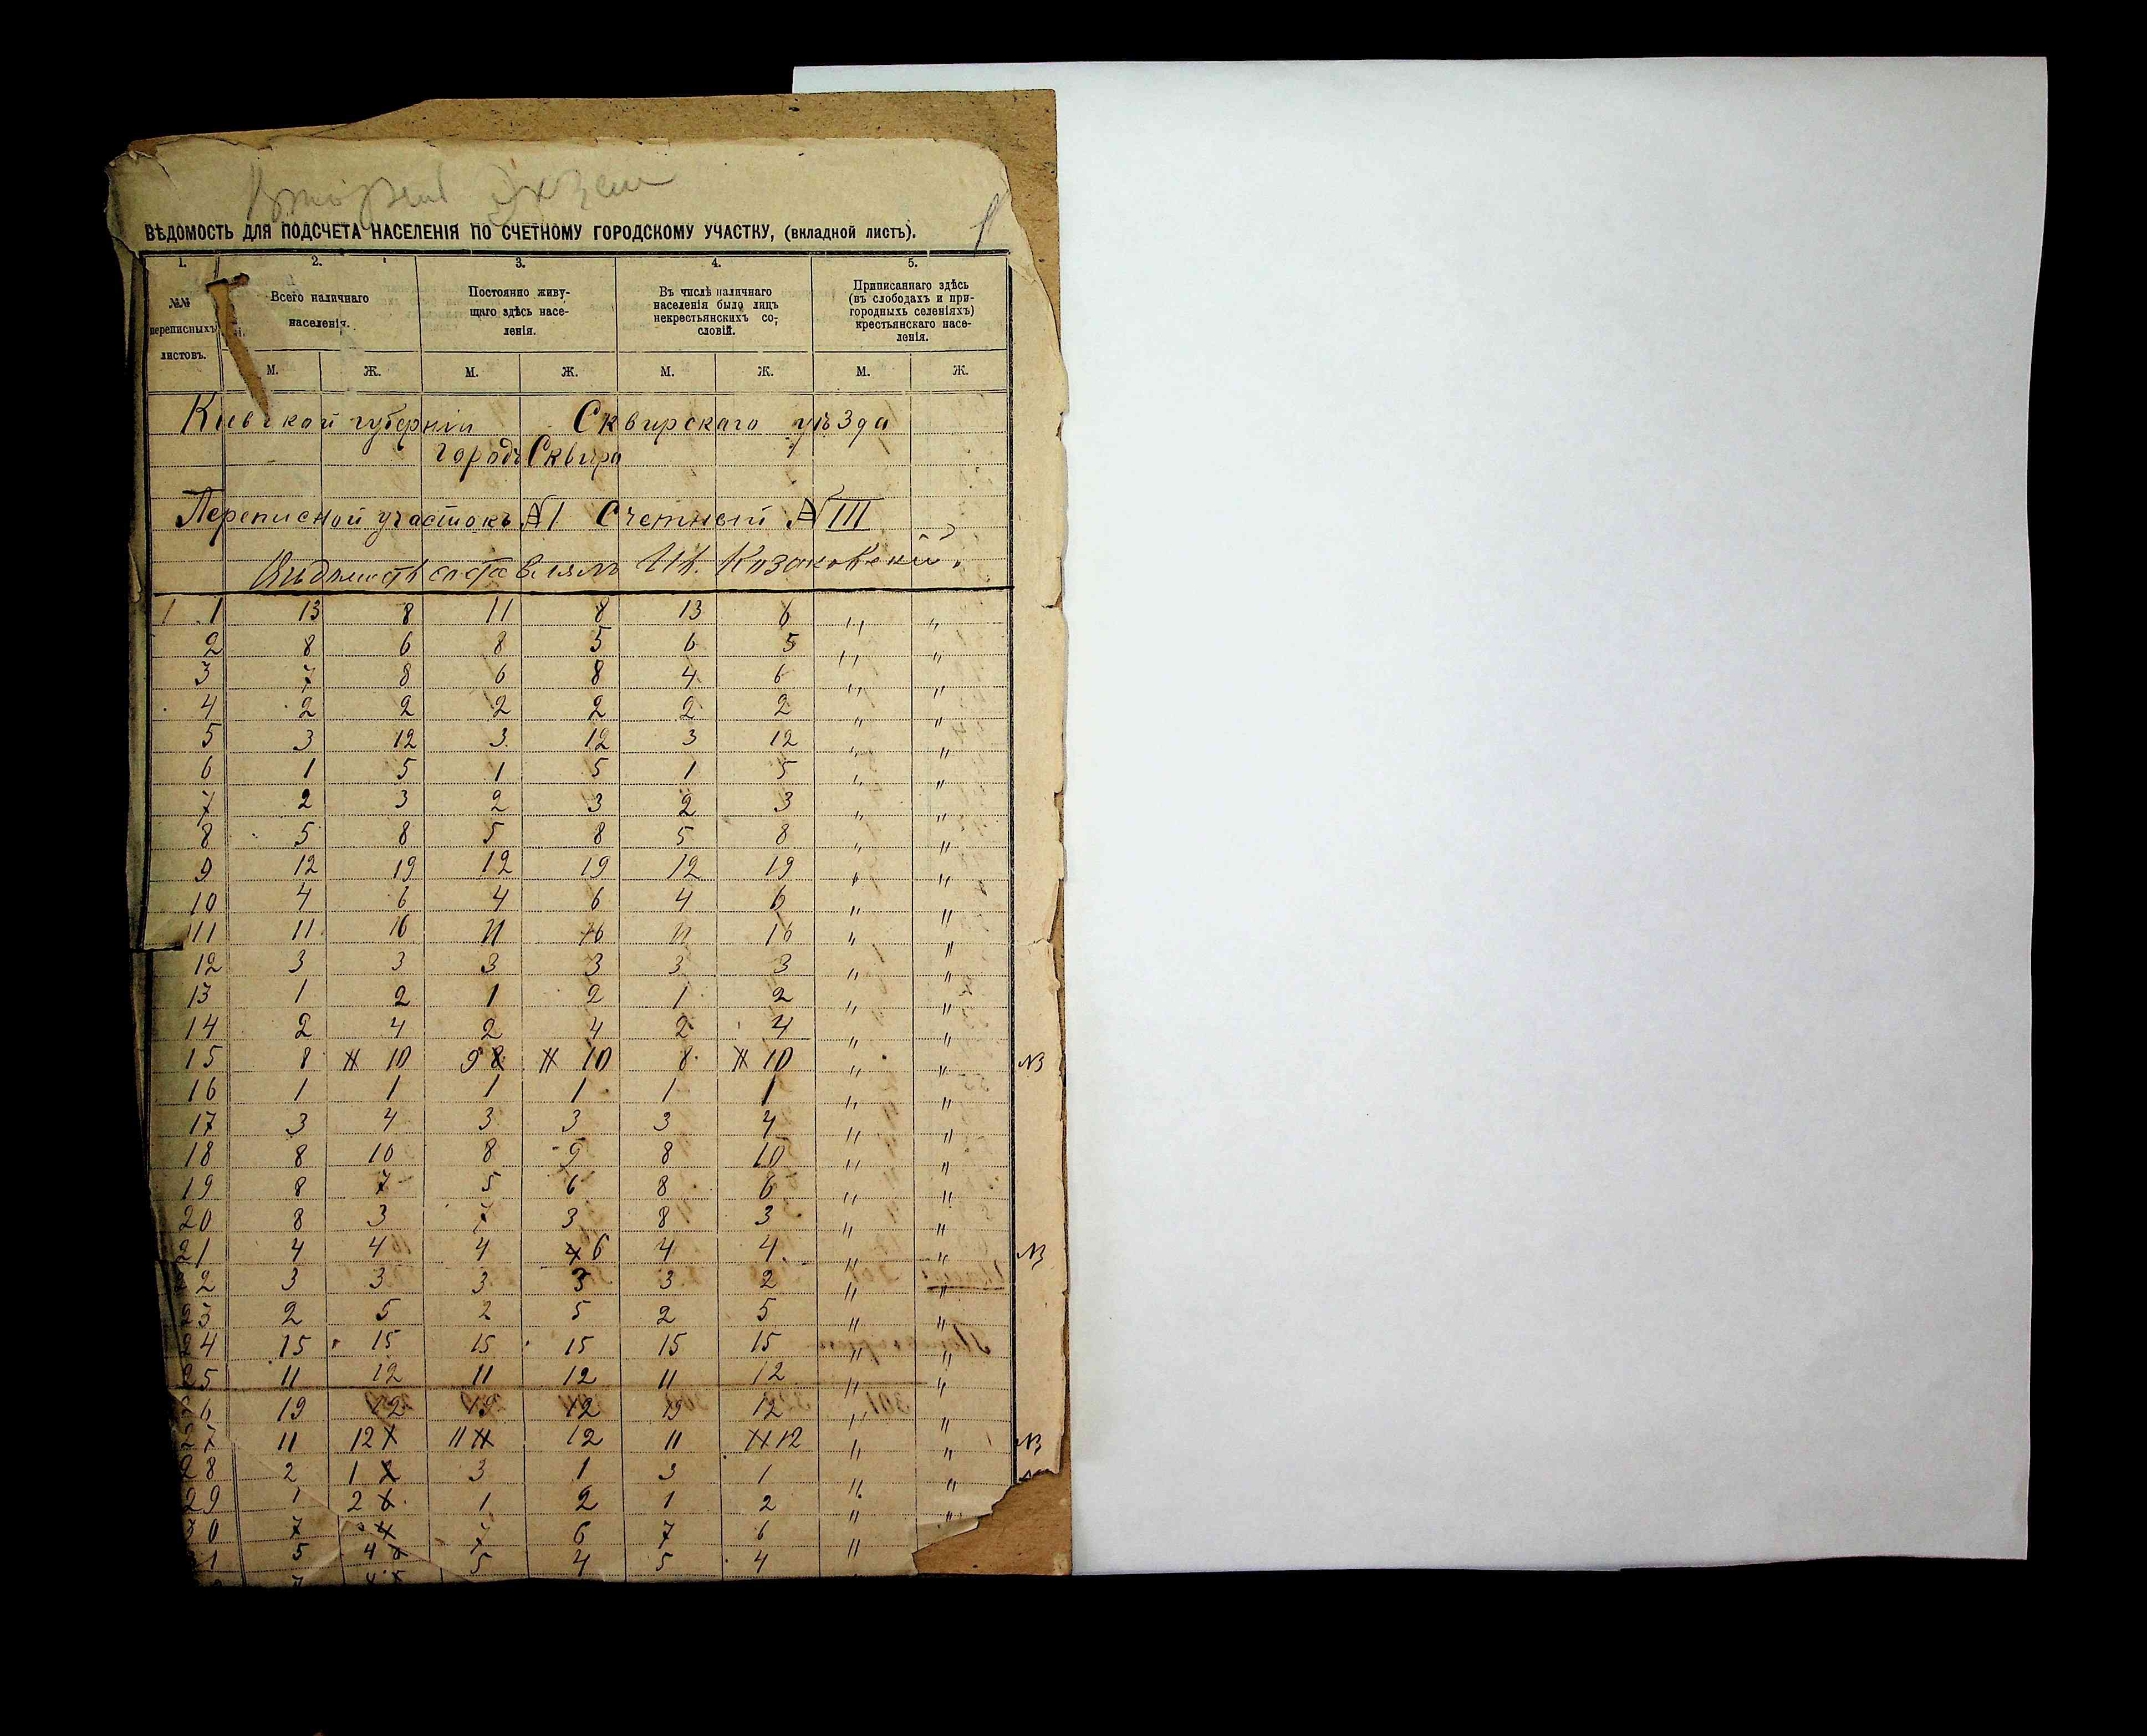 Второй Экзем
ВѢДОМОСТЬ ДЛЯ ПОДСЧЕТА НАСЕЛЕНІЯ ПО СЧЕТНОМУ ГОРОДСКОМУ УЧАСТКУ, (вкладной листъ).
1. 2. 3. 4. 5.
№№ переписныхъ листовъ.
Всего наличнаго населенія.
Постоянно живущаго здѣсь населенія.
Въ числѣ наличнаго населенія было лицъ некрестьянскихъ сословій.
Приписаннаго здѣсь (въ слободахъ и пригородныхъ селеніяхъ) крестьянскаго населенія.
М. Ж. М. Ж. М. Ж. М. Ж.
Кіевской губерніи Сквирскаго уѣзда
городъ Сквира
Переписной участокъ № 1 Счетный № III
Вѣдомость составлялъ Ив. Козаковскій.
1 13 8 11 8 13 6 " "
2 8 6 8 5 6 5 " "
3 7 8 6 8 4 6 " "
4 2 2 2 2 2 2 " "
5 3 12 3 12 3 12 " "
6 1 5 1 5 1 5 " "
7 2 3 2 3 2 3 " "
8 5 8 5 8 5 8 " "
9 12 19 12 19 12 19 " "
10 4 6 4 6 4 6 " "
11 11 16 11 16 11 16 " "
12 3 3 3 3 3 3 " "
13 1 2 1 2 1 2 " "
14 2 4 2 4 2 4 " "
15 8 11 10 9 8 11 10 8 11 10 " " NB
16 1 1 1 1 1 1 " "
17 3 4 3 3 3 4 " "
18 8 10 8 9 8 10 " "
19 8 7 5 6 8 6 " "
20 8 3 7 3 8 3 " "
21 4 4 4 4 6 4 4 " " NB
22 3 3 3 3 3 2 " "
23 2 5 2 5 2 5 " "
24 15 15 15 15 15 15 " "
25 11 12 11 12 11 12 " "
26 19 12 19 12 19 12 " "
27 11 12 11 12 11 12 " " NB
28 2 1 2 3 1 3 1 " "
29 1 2 6 1 2 1 2 " "
30 7 4 7 6 7 6 "
31 5 4 5 4 5 4